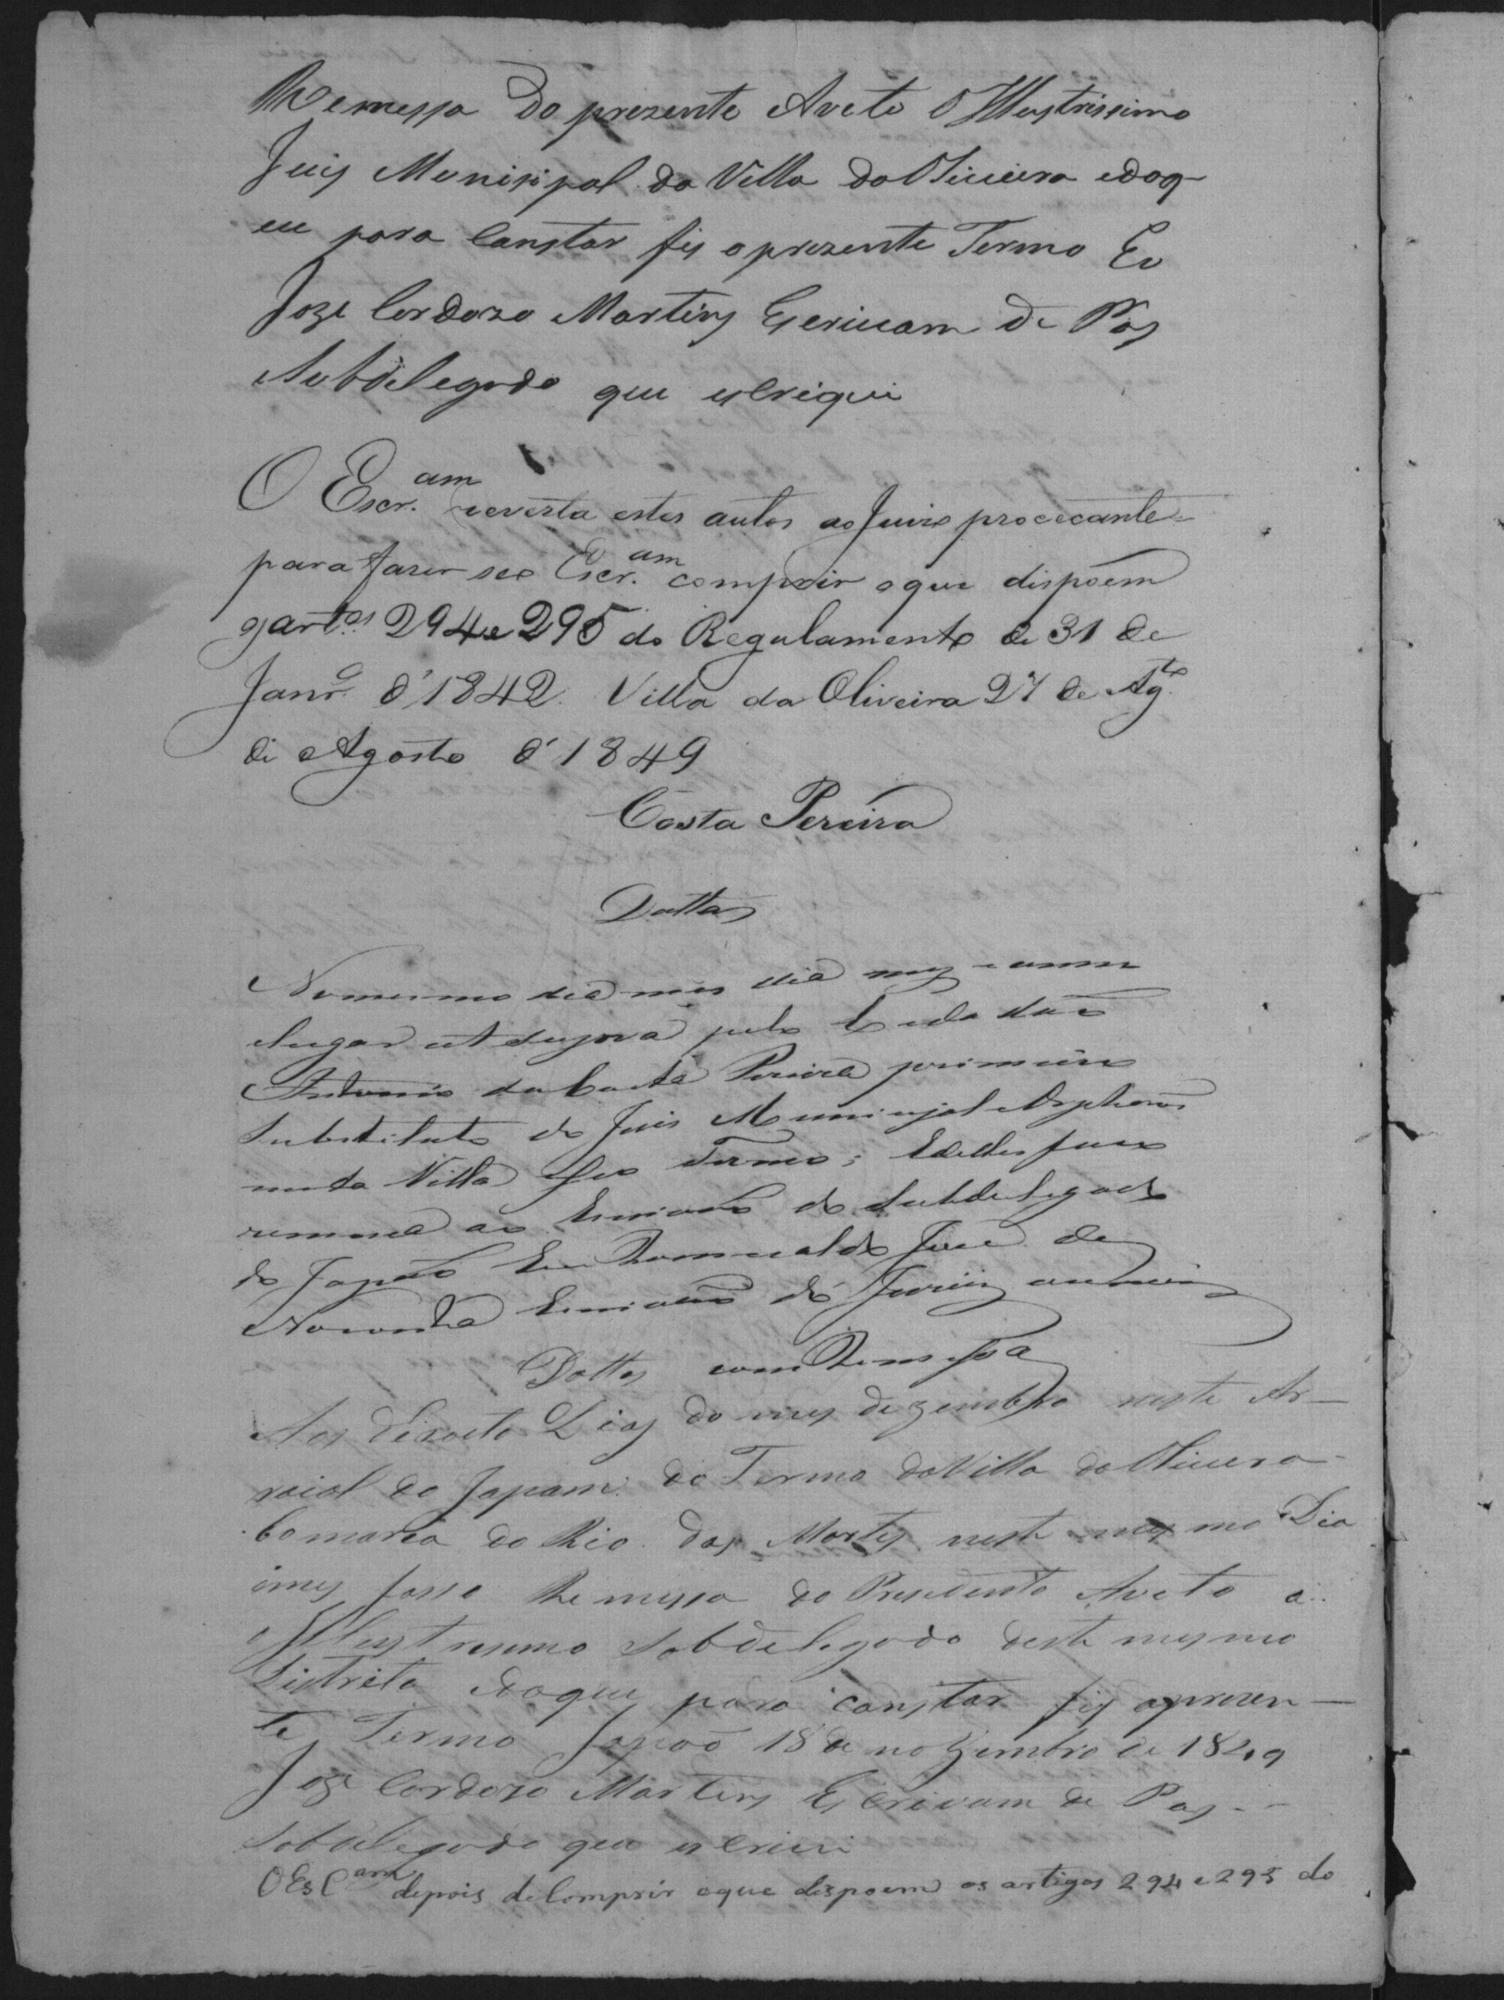 Remessa do prezente Aveto O Illustrissimo
Juis Munisipal da Villa da Oliveira edoq
eu para Constar fis oprezente Termo Eu
Joze Cordozo Martins Escrivam de Pas
Subdelegado que escriqui
O Escr.am reverta estes autos ao Juizo procecante
para fazer seo Escr.am comprir oque dispoem
os artos 294 e 295 do Regulamento de 31 de
Janro d'1842. Villa da Oliveira 27 de Agto
di Agosto d'1849
Costa Pereira
Dattas
No mesmo dia mes
lugar ut supra pelo Cidadão
Antonio da Costa Pereira primeiro
Substituto do Juis Municipal Orphaons
nesta Villa seo Termo;
remessa ao Escrivão do Subdelegado
do Japão Eu Romualdo José de
Noronha Escrivão
Dattas com Remessa
Aos dezoito Dias do mes dezembro neste Ar-
raial do Japam do Termo da Villa da Oliveira
Comarca do Rio das Mortes neste mesmo Dia
imes fasso Remessa do Presedente Aveto a
Illustresimo Sobdelegado deste mesmo
Distrito edoque para constar fis aprezen-
te Termo Japão 18 de nozembro de 1849
Joze Cordozo Martins Escrivam de Pas
Sobdelegado que escrivi
O EsCam depois de Comprir oque dispoem os artigos 294 e 295 do